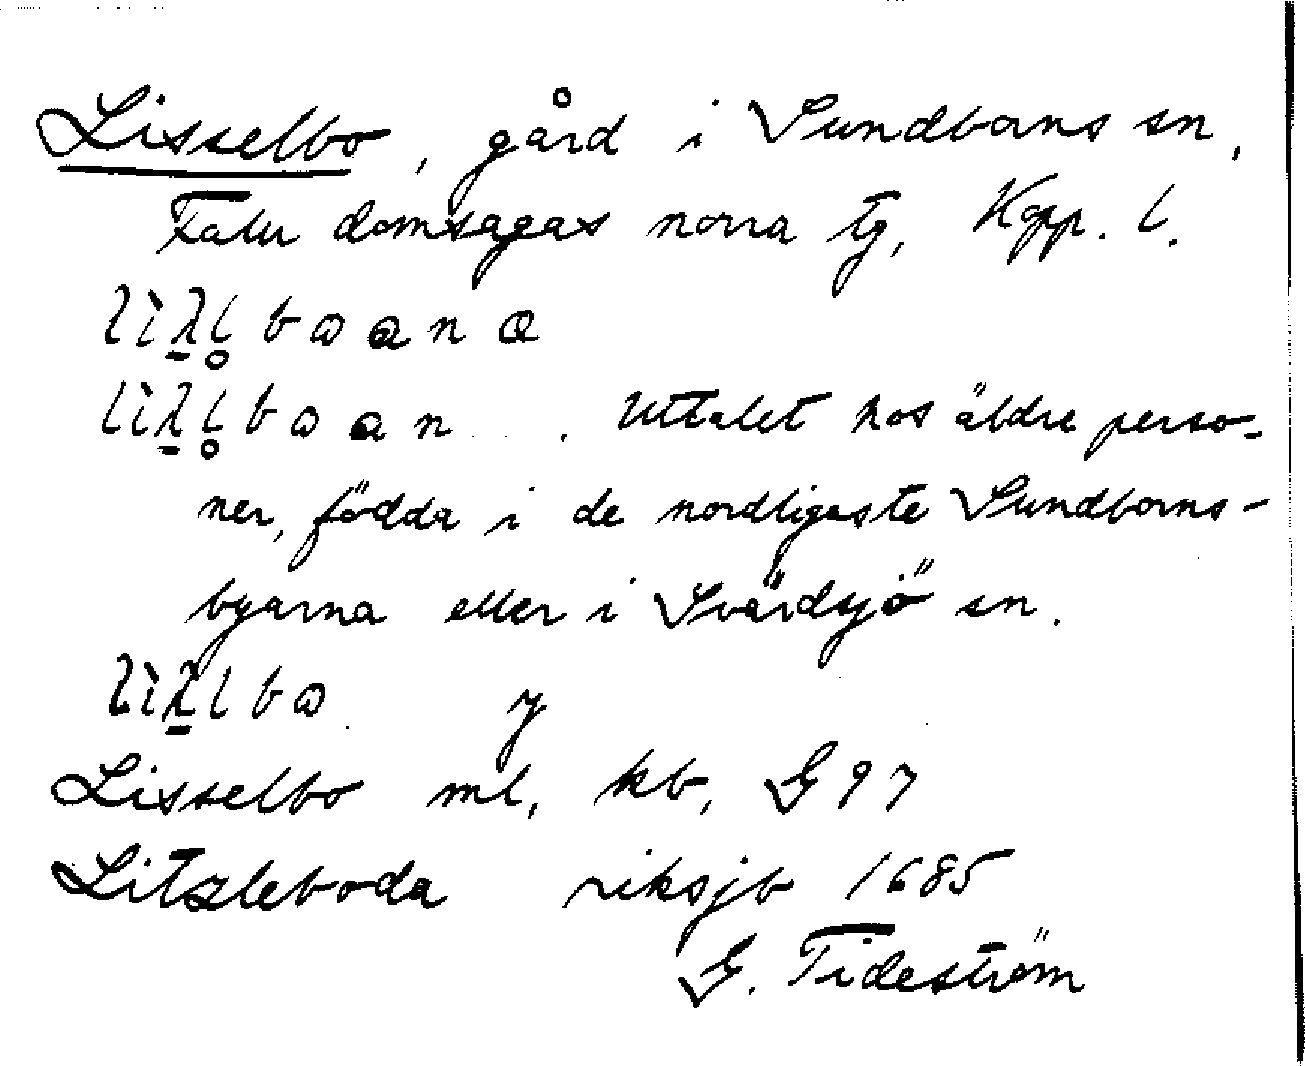 Lisselbo, gård i Sundborns sn,
Falu domsagas norra tg, Kopp. l.
lìλ̱l̥baana
lìλ̱l̥baan. Uttalet hos äldre perso-
ner, födda i de nordligaste Sundborns-
byarna eller i Svärdsjö sn.
lìλ̱lba y
Lisselbo ml, kb, G97
Litzleboda riksjb 1685
G. Tideström